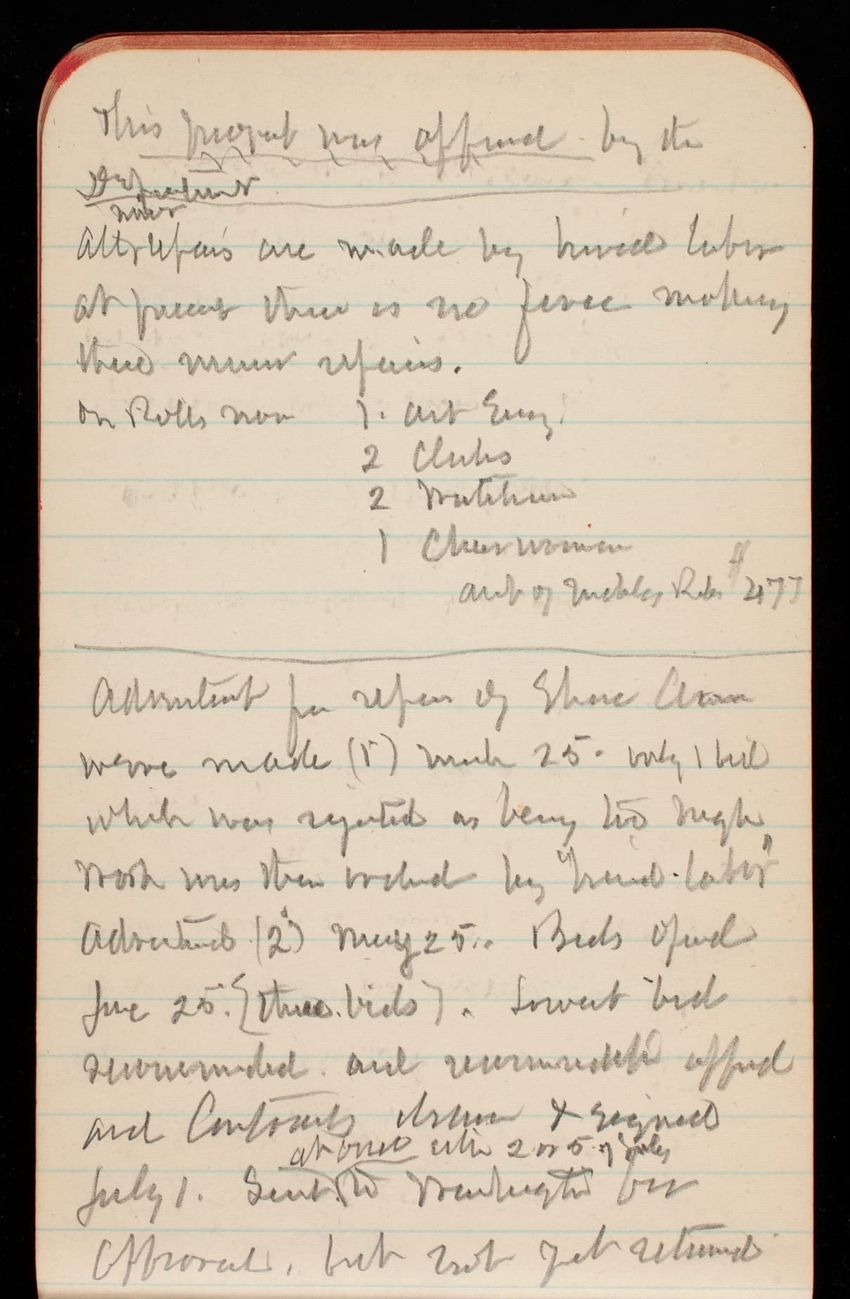 This project was approved by the
Department
minor
All repairs are made by hired labor
at present there is no force making
these minor repairs.
On Rolls now 1. Asst Eng.
2 Clerks
2 Watchmen
1 Charwoman
amt of monthly Rolls $ 477
Advertisement for repair of Stone
were made (1) March 25. only 1 bid
which was rejected as being too high
Work was then ordered by "hired labor"
Advertised (2) May 25. Bids opened
June 25. {three bids}. Lowest bid
recommended and approved
and Contracts drawn & signed
at once either 2 or 5 of July
July 1. Sent to Washington for
Approval, but not yet returned